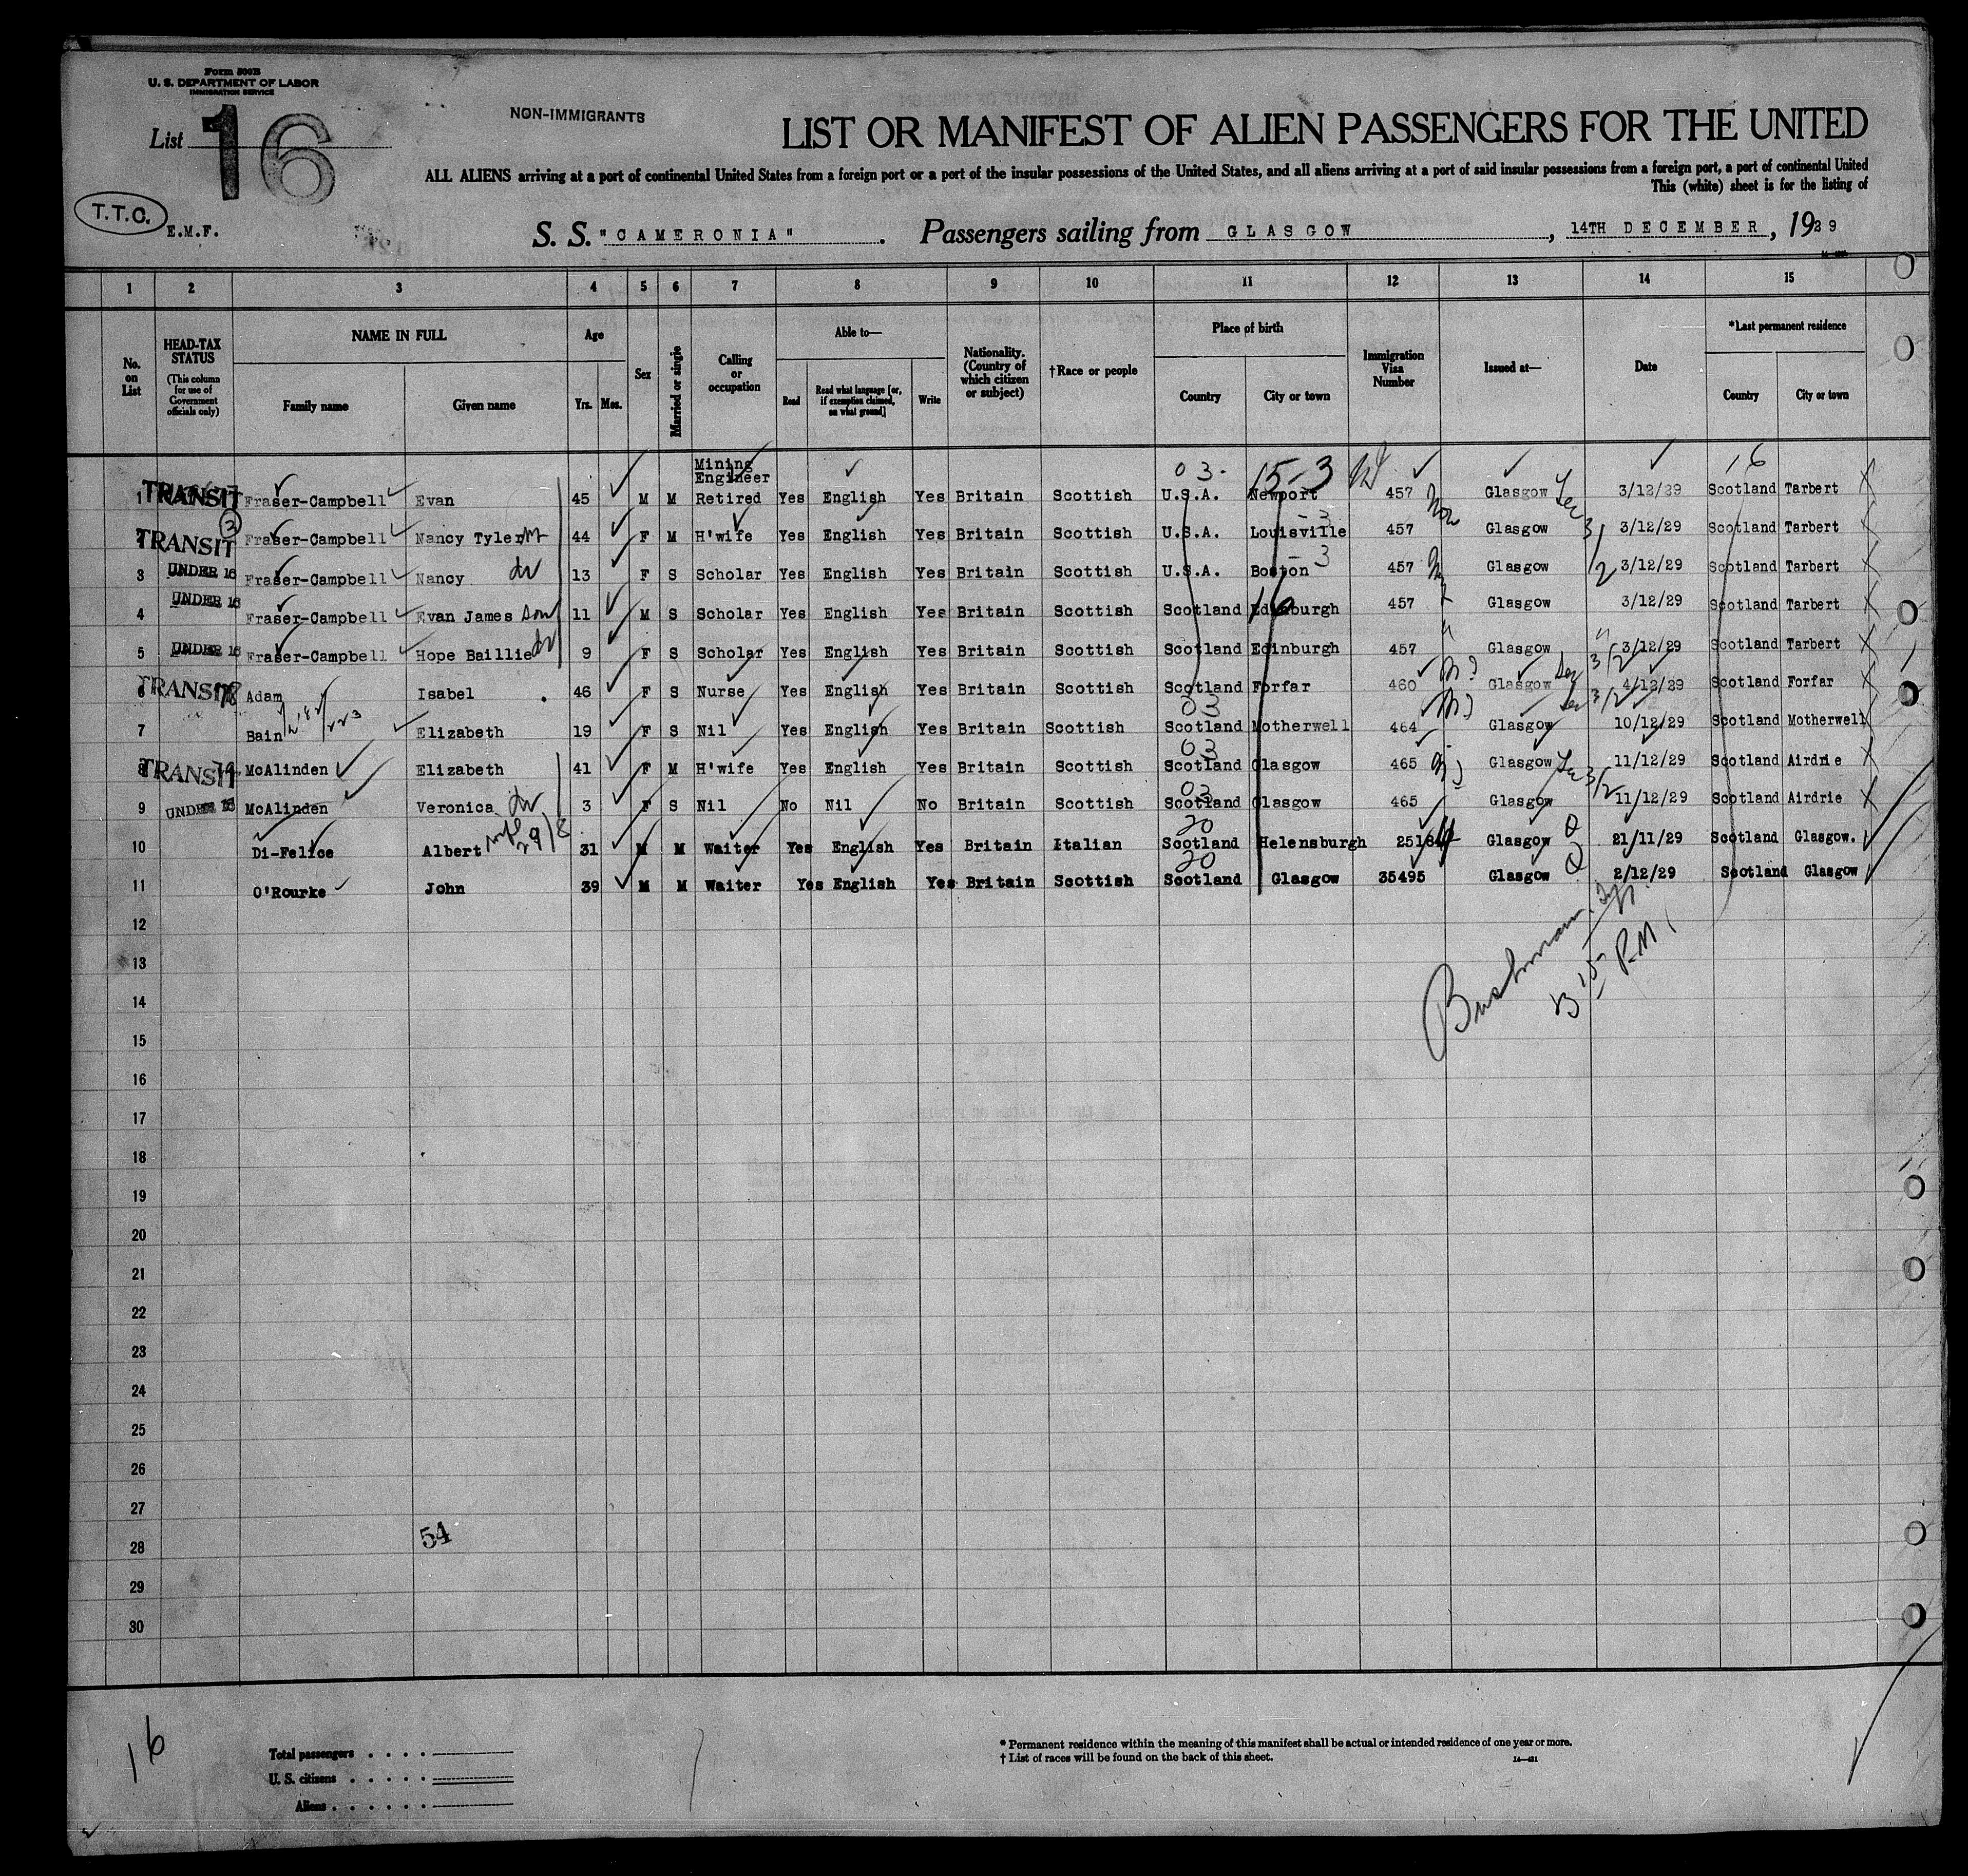 Form 500B
U. S. DEPARTMENT OF LABOR
IMMIGRATION SERVICE
List 16
NON-IMMIGRANTS
LIST OR MANIFEST OF ALIEN PASSENGERS FOR THE UNITED
ALL ALIENS arriving at a port of continental United States from a foreign port or a port of the insular possessions of the United States, and all aliens arriving at a port of said insular possessions from a foreign port, a port of continental United
This (white) sheet is for the listing of
T.T.C.
E.M.F.
S. S. "CAMERONIA". Passengers sailing from GLASGOW, 14TH DECEMBER, 1929
1 2 3 4 5 6 7 8 9 10 11 12 13 14 15
No. on List
HEAD-TAX STATUS (This column for use of Government officials only)
NAME IN FULL Family name Given name
Age Yrs. Mos.
Sex
Married or single
Calling or occupation
Able to— Read Read what language [or, if exemption claimed, on what ground] Write
Nationality. (Country of which citizen or subject)
†Race or people
Place of birth Country City or town
Immigration Visa Number
Issued at—
Date
*Last permanent residence Country City or town
03- 15-3 16
1 TRANSIT Fraser-Campbell Evan 45 M M Mining Engineer Retired Yes English Yes Britain Scottish U.S.A. Newport 457 Glasgow 3/12/29 Scotland Tarbert
2 TRANSIT Fraser-Campbell Nancy Tyler 44 F M H'wife Yes English Yes Britain Scottish U.S.A. Louisville 457 Glasgow 3/12/29 Scotland Tarbert
3 UNDER 16 Fraser-Campbell Nancy 13 F S Scholar Yes English Yes Britain Scottish U.S.A. Boston 457 Glasgow 3/12/29 Scotland Tarbert
4 UNDER 16 Fraser-Campbell Evan James Son 11 M S Scholar Yes English Yes Britain Scottish Scotland Edinburgh 457 Glasgow 3/12/29 Scotland Tarbert
5 UNDER 16 Fraser-Campbell Hope Baillie 9 F S Scholar Yes English Yes Britain Scottish Scotland Edinburgh 457 Glasgow 3/12/29 Scotland Tarbert
6 TRANSIT Adam Isabel 46 F S Nurse Yes English Yes Britain Scottish Scotland Forfar 460 Glasgow 4/12/29 Scotland Forfar
7 Bain Elizabeth 19 F S Nil Yes English Yes Britain Scottish 03 Scotland Motherwell 464 Glasgow 10/12/29 Scotland Motherwell
8 TRANSIT McAlinden Elizabeth 41 F M H'wife Yes English Yes Britain Scottish 03 Scotland Glasgow 465 Glasgow 11/12/29 Scotland Airdrie
9 UNDER 16 McAlinden Veronica 3 F S Nil No Nil No Britain Scottish 03 Scotland Glasgow 465 Glasgow 11/12/29 Scotland Airdrie
10 Di-Felice Albert 31 M M Waiter Yes English Yes Britain Italian 20 Scotland Helensburgh Glasgow 21/11/29 Scotland Glasgow.
11 O'Rourke John 39 M M Waiter Yes English Yes Britain Scottish 20 Scotland Glasgow 35495 Glasgow 2/12/29 Scotland Glasgow
12
Bushman
13
P.M.
14
15
16
17
18
19
20
21
22
23
24
25
26
27
54
28
29
30
16
Total passengers
U. S. citizens
Aliens
* Permanent residence within the meaning of this manifest shall be actual or intended residence of one year or more.
† List of races will be found on the back of this sheet.
14—421